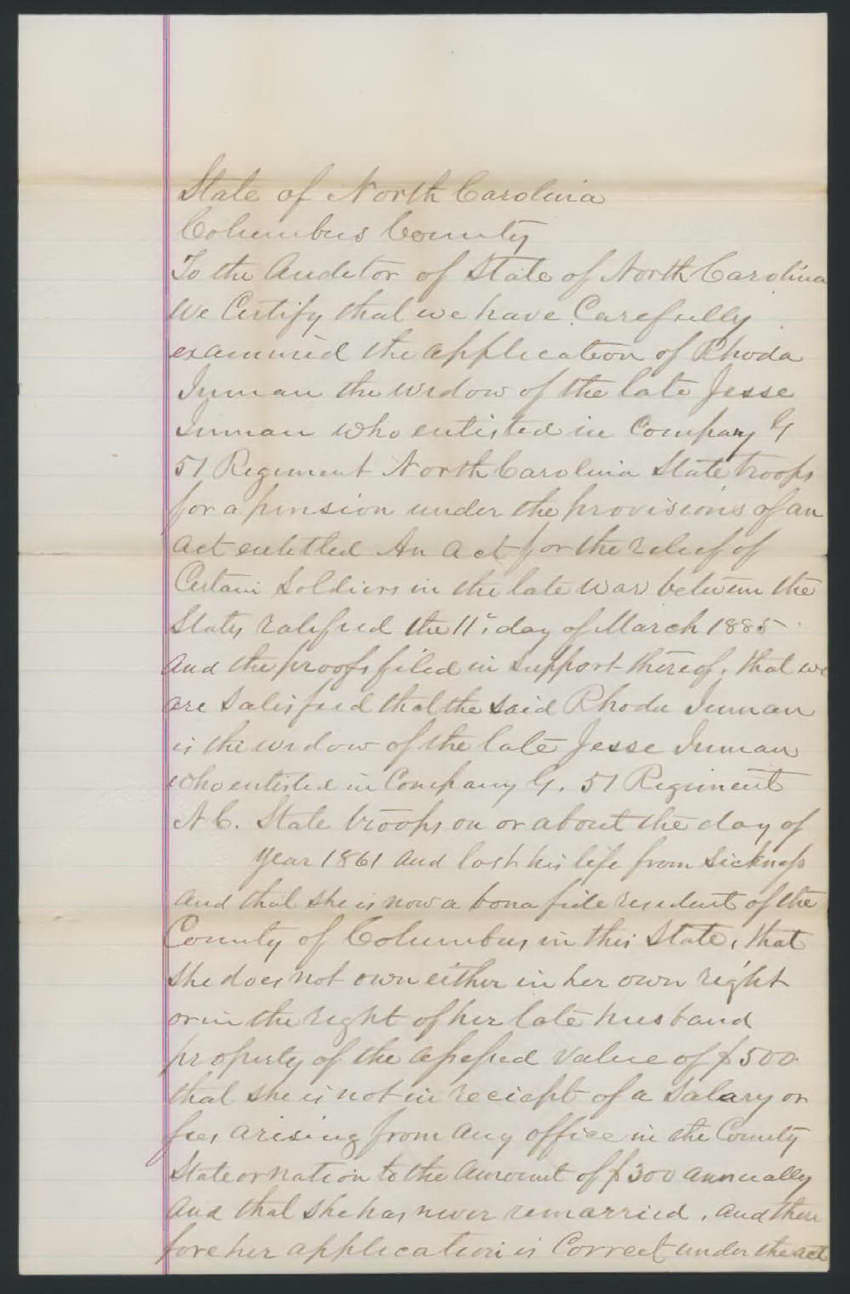 State of North Carolina
Columbus County
To the Auditor of State of North Carolina
We Certify that we have Carefully
examined the application of Rhoda
Inman the widow of the late Jesse
Inman who entisted in Company G
51 Regiment North Carolina State troops
for a pension under the provisions of an
act entitled An act for the relief of
Certain Soldiers in the late war between the
States ratified the 11th day of March 1885
and the proofs filed in support thereof, that we
are Satisfied that the said Rhoda Inman
is the widow of the late Jesse Inman
who entisted in Company G. 51 Regiment
N.C. State troops on or about the day of
year 1861 and lost his life from Sickness
and that she is now a bona fide resident of the
County of Columbus in this State, that
she does not own either in her own right
or in the right of her late husband
property of the assessed value of $500
that she is not in reciept of a Salary or
fees arising from any office in the County
State or nation to the amount of $300 annually
and that she has never remarried, and there
fore her application is Correct under the act